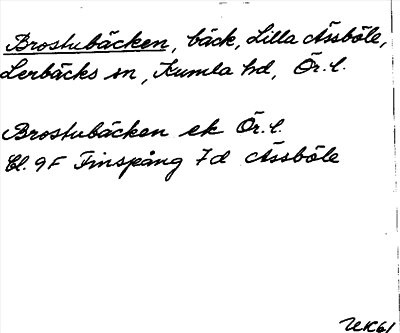 Brostubäcken, bäck, Lilla Åssböle,
Lerbäcks sn, Kumla hd, Ör. l.
Brostubäcken ek Ör. l.
Bl. 9F Finspång 7d Åssböle
UK61